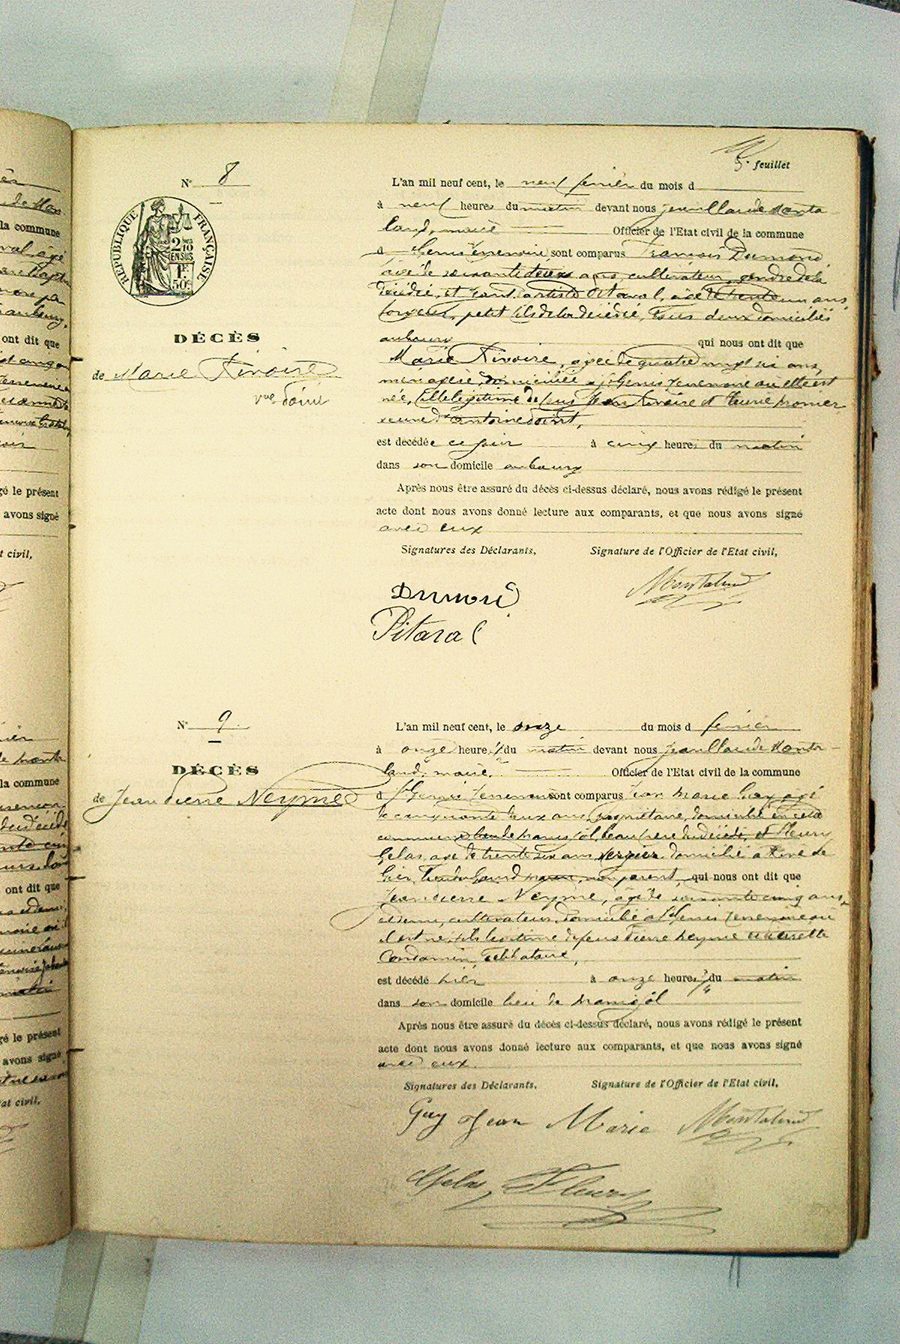 5e feuillet
N° 8
RÉPUBLIQUE FRANÇAISE
2 10mes EN SUS
1F. 50c
DÉCÈS
de Marie Rivoire
vve Doint
L'an mil neuf cent, le neuf février du mois d
à neuf heures du matin devant nous Jean Claude Monta-
land, maire Officier de l'Etat civil de la commune
à St Genis Terrenoire sont comparus François Dumond
âgé de soixante deux ans cultivateur, gendre de la
décédée, et Pitaval, âgé de trente un ans,
petit fils de la décédée, tous deux domiciliés
au bourg qui nous ont dit que
Marie Rivoire, âgée de quatre vingt six ans,
ménagère, domiciliée à St Genis Terrenoire où elle est
née, fille légitime de feus Jean Rivoire et
veuve d'Antoine Doint,
est décédée ce jour à cinq heures du matin
dans son domicile au bourg
Après nous être assuré du décès ci-dessus déclaré, nous avons rédigé le présent
acte dont nous avons donné lecture aux comparants, et que nous avons signé
avec eux
Signatures des Déclarants, Signature de l'Officier de l'Etat civil,
Dumond Montaland
Pitaval
N° 9
DÉCÈS
de Jean Pierre Neyme
L'an mil neuf cent, le onze du mois d février
à onze heures 1/2 du matin devant nous Jean Claude Monta-
land, maire, Officier de l'Etat civil de la commune
à St Genis Terrenoire sont comparus Jean Marie Guy, âgé
de cinquante deux ans, propriétaire, domicilié en cette
commune lieu de beau frère du décédé, et Fleury
Gelas, âgé de trente six ans, verrier, domicilié à Rive de
Gier, non parent, qui nous ont dit que
Jean Pierre Neyme, âgé de soixante cinq ans
et demi, cultivateur, domicilié à St Genis Terrenoire où
il est né, fils légitime de feus Pierre Neyme et
Condamin, célibataire,
est décédé hier à onze heures 1/2 du matin
dans son domicile lieu de
Après nous être assuré du décès ci-dessus déclaré, nous avons rédigé le présent
acte dont nous avons donné lecture aux comparants, et que nous avons signé
avec eux.
Signatures des Déclarants, Signature de l'Officier de l'Etat civil,
Guy Jean Marie Montaland
Gelas Fleury